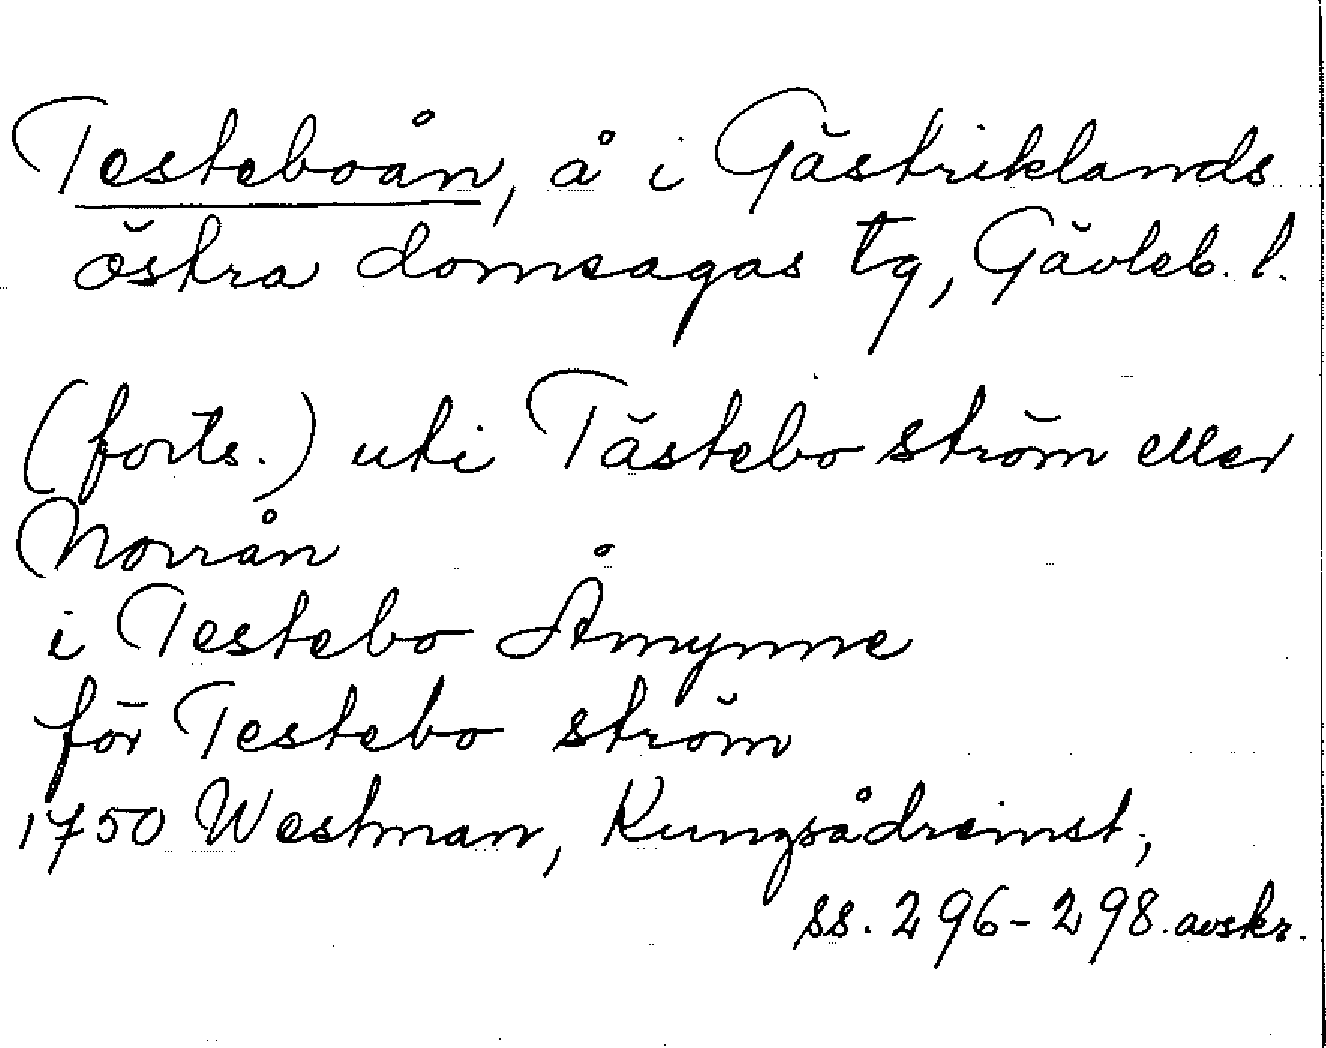 Testeboån, å i Gästriklands
östra domsagas tg, Gävleb. l.
(forts.) uti Tästebo ström eller
Norrån
i Testebo Åmynne
för Testebo ström
1750 Westman, Kungsådreinst,
ss. 296-298. avskr.